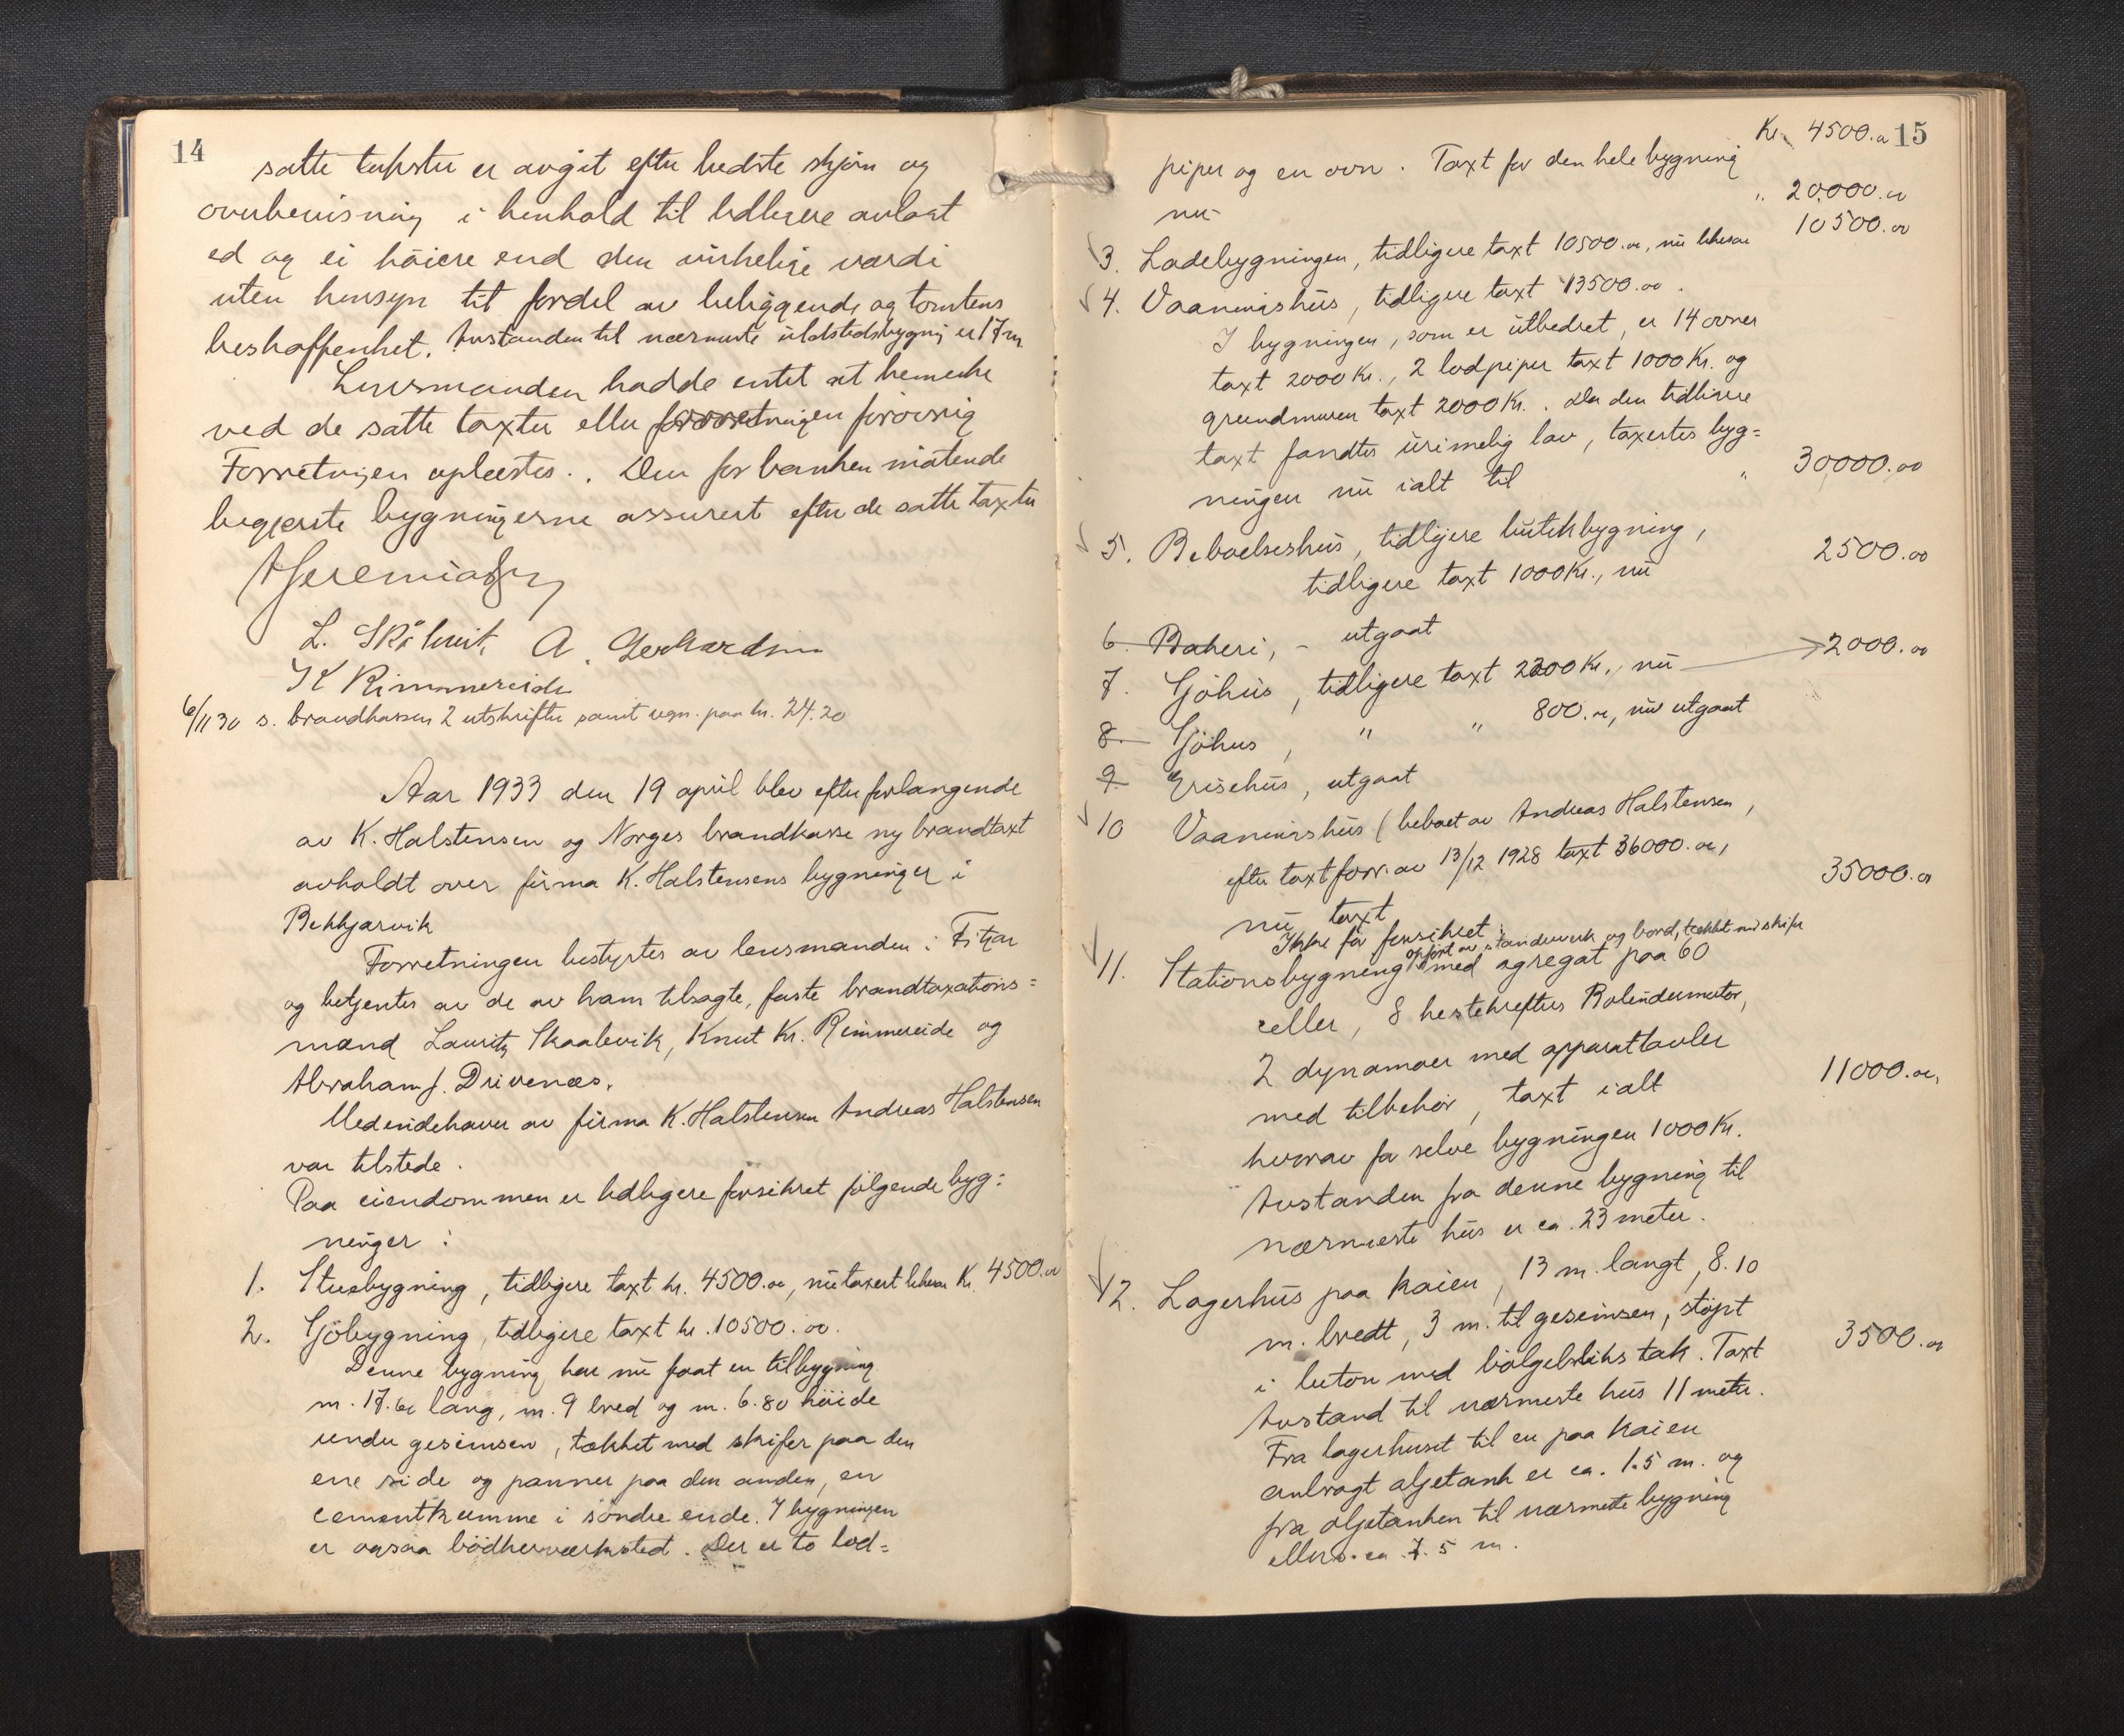 14
satte takster er avgit efter bedste skjøn og
overbevisning i henhold til tidligere avlagt
ed og ei høiere end den virkelige værdi
uten hensyn til fordel av beliggende og tomtens
beskaffenhet. Avstanden til nærmeste ildstedsbygnig er 17 m
Lensmanden hadde intet at bemerke
ved de satte taxter eller forretningen forøvrig
Forretnigen oplæstes. Den for banken møtende
begjærte bygningerne assurert efter de satte taxter
L. Skålevik A. Gerhardsen
K Rimmereide
6/11 30 s. brandkassen 2 utskrifter samt regn. paa kr. 24.20
Aar 1933 den 19 april blev efter forlangende
av K. Halstensen og Norges brandkasse ny brandtaxt
avholdt over firma K. Halstensens bygninger i
Bekkjarvik
Forretningen bestyrtes av lensmanden i Fitjar
og betjentes av de av ham tilsagte, faste brandtaxations=
mænd Lauritz Skaalevik, Knut Kr. Rimmereide og
Abraham J. Drivenæs.
Medindehaver av firma K. Halstensen Andreas Halstensen
var tilstede.
Paa eiendommen er tidligere forsikret følgende byg=
ninger:
1. Stuebygning, tidligere taxt kr. 4500.00, nu taxert likesaa Kr. 4500.00
2. Sjøbygning, tidligere taxt kr. 10500.00.
Denne bygning har nu faat en tilbygning
m. 17. lang, m. 9 bred og m. 6.80 høide
under gesimsen, tækket med skifer paa den
ene side og panner paa den anden, en
cementkumme i søndre ende. I bygningen
er ogsaa bødkerværksted. Der er to lod=
15
Kr. 4500.00
piper og en ovn. Taxt for den hele bygning
nu " 20,000.00
3. Ladebygningen, tidligere taxt 10500.00, nu likesaa 10500.00
4. Vaaningshus, tidligere taxt 13500.00.
I bygningen, som er utbedret, er 14 ovner
taxt 2000 Kr., 2 lodpiper taxt 1000 Kr. og
grundmuren taxt 2000 Kr. Da den tidligere
taxt fandtes urimelig lav, taxertes byg=
ningen nu ialt til " 30,000.00
5. Beboelseshus, tidligere butikbygning,
tidligere taxt 1000 Kr., nu 2500.00
6. Bakeri, - utgaat
7. Sjøhus, tidligere taxt 2200 Kr., nu 2000.00
8. Sjøhus, " " 800.00, nu utgaat
9 Grisehus, utgaat
10 Vaaningshus (beboet av Andreas Halstensen,
efter taxtforr. av 13/12 1928 taxt 36000.00,
nu taxt 35000.00
Ikke før forsikret:
opført av standerverk og bord, tækket m skifer
11. Stationsbygning med agregat paa 60
celler, 8 hestekræfters Bolindermotor,
2 dynamoer med apparattavler
med tilbehør, taxt ialt 11000.00,
hvorav for selve bygningen 1000 Kr.
Avstanden fra denne bygning til
nærmeste hus er ca. 23 meter.
12. Lagerhus paa kaien, 13 m. langt, 8.10
m. bredt, 3 m. til gesimsen, støpt
i beton med bølgebliks tak. Taxt 3500.00
Avstand til nærmeste hus 11 meter.
Fra lagerhuset til en paa kaien
anbragt oljetank er ca. 1.5 m. og
fra oljetanken til nærmeste bygning
ellers ca. 7.5 m.